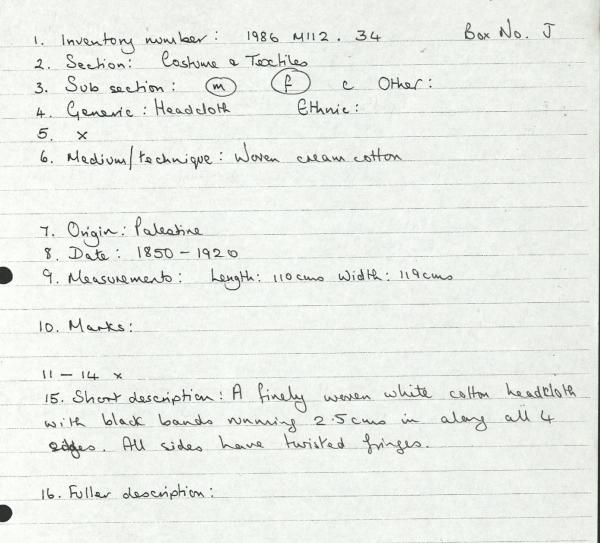 1. Inventory number: 1986 M112. 34 Box No. J
2. Section: Costume & Textiles
3. Sub section: m f c Other:
4. Generic: Headcloth Ethnic:
5. x
6. Medium/technique: Woven cream cotton
7. Origin: Palestine
8. Date: 1850-1920
9. Measurements: Length: 110cms Width: 119cms
10. Marks:
11-14 x
15. Short description: A finely woven white cotton headcloth
with black bands running 2.5cms in along all 4
edges. All sides have twisted fringes.
16. Fuller description: